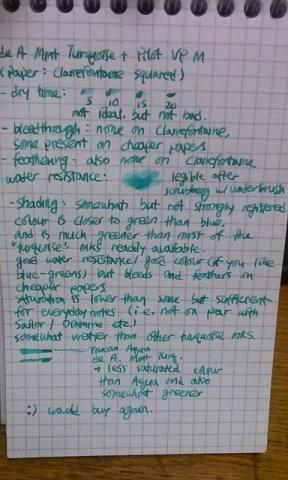 de A Mmt Turquoise + Pilot VP M
(Paper: Clairefontaine squared)
- dry time:
5 10 15 20
not ideal, but not bad.
- bleedthrough: none on Clairefontaine,
some present on cheaper papers
- feathering: also none on Clairefontaine
water resistance: legible after
scrubbing w/ waterbrush
- Shading: somewhat but not strongly registered
colour is closer to green than blue,
and is much greener than most of the
"turquoise" inks readily available.
good water resistance/ good colour (if you like
blue-greens) but bleeds and feathers on
cheaper papers
saturation is lower than some but sufficient
for everyday notes (i.e. not on par with
Sailor/ Diamine etc.)
somewhat wetter than other turquoise inks.
Toucan Aqua
de A. Mmt Turq.
→ less saturated colour
than Aqua and also
somewhat greener
:) would buy again.